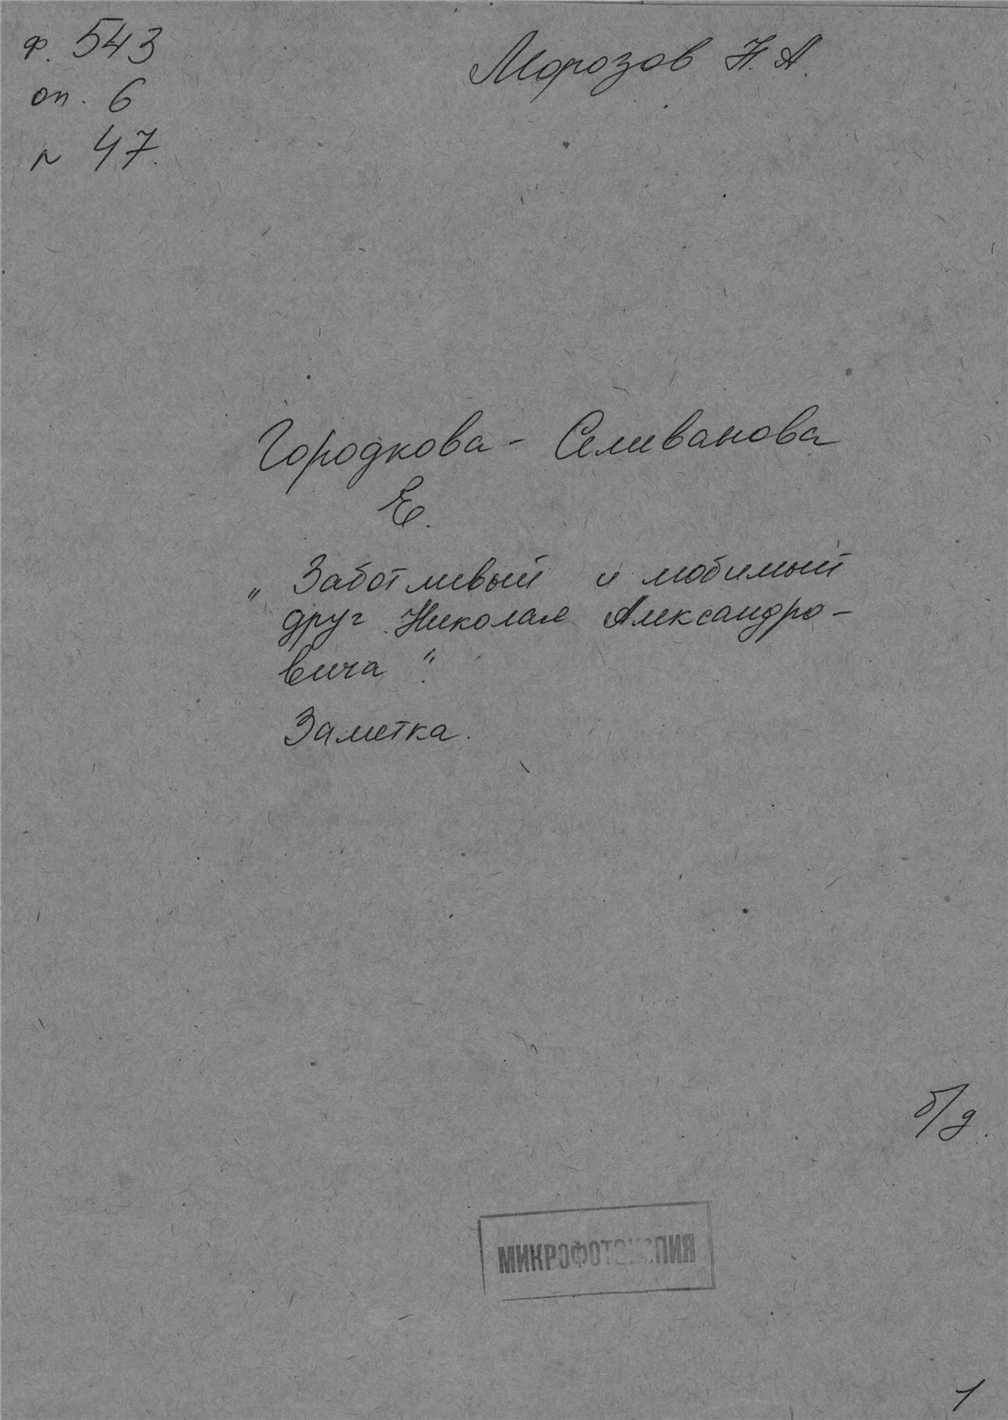 ф. 543
оп. 6
№ 47.
Морозов Н. А.
Городкова - Селиванова
Е.
„ Заботливый и любимый
друг Николая Александро-
вича “.
Заметка.
б/д.
МИКРОФОТОКОПИЯ
1